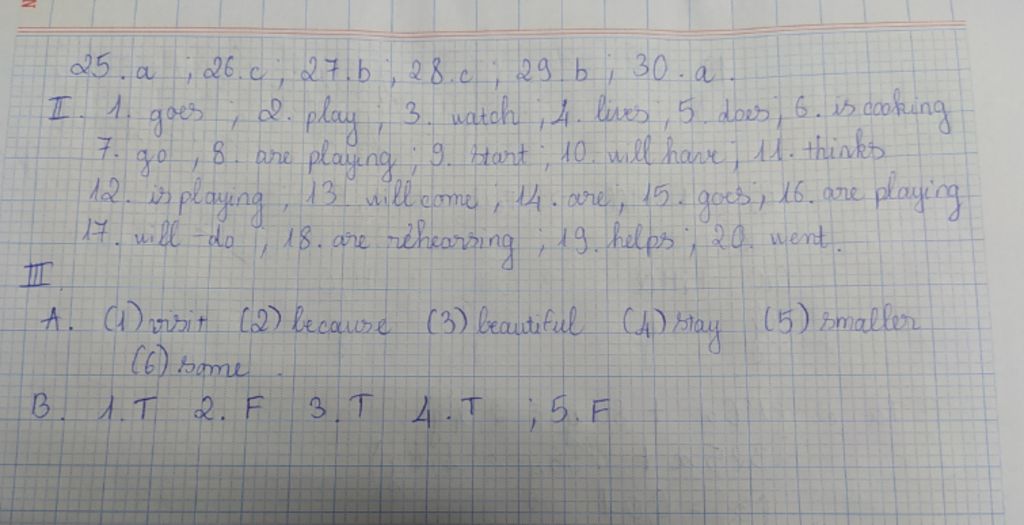 25. a ; 26. c ; 27. b ; 28. c ; 29 b ; 30. a.
II. 1. goes ; 2. play ; 3. watch ; 4. lives ; 5. does ; 6. is cooking
7. go , 8. are playing ; 9. start ; 10. will have ; 11. thinks
12. is playing ; 13. will come ; 14. are ; 15. goes ; 16. are playing
17. will do ; 18. are rehearsing ; 19. helps ; 20. went.
III
A. (1) visit (2) because (3) beautiful (4) stay (5) smaller
(6) some .
B. 1. T 2. F 3. T 4. T ; 5. F